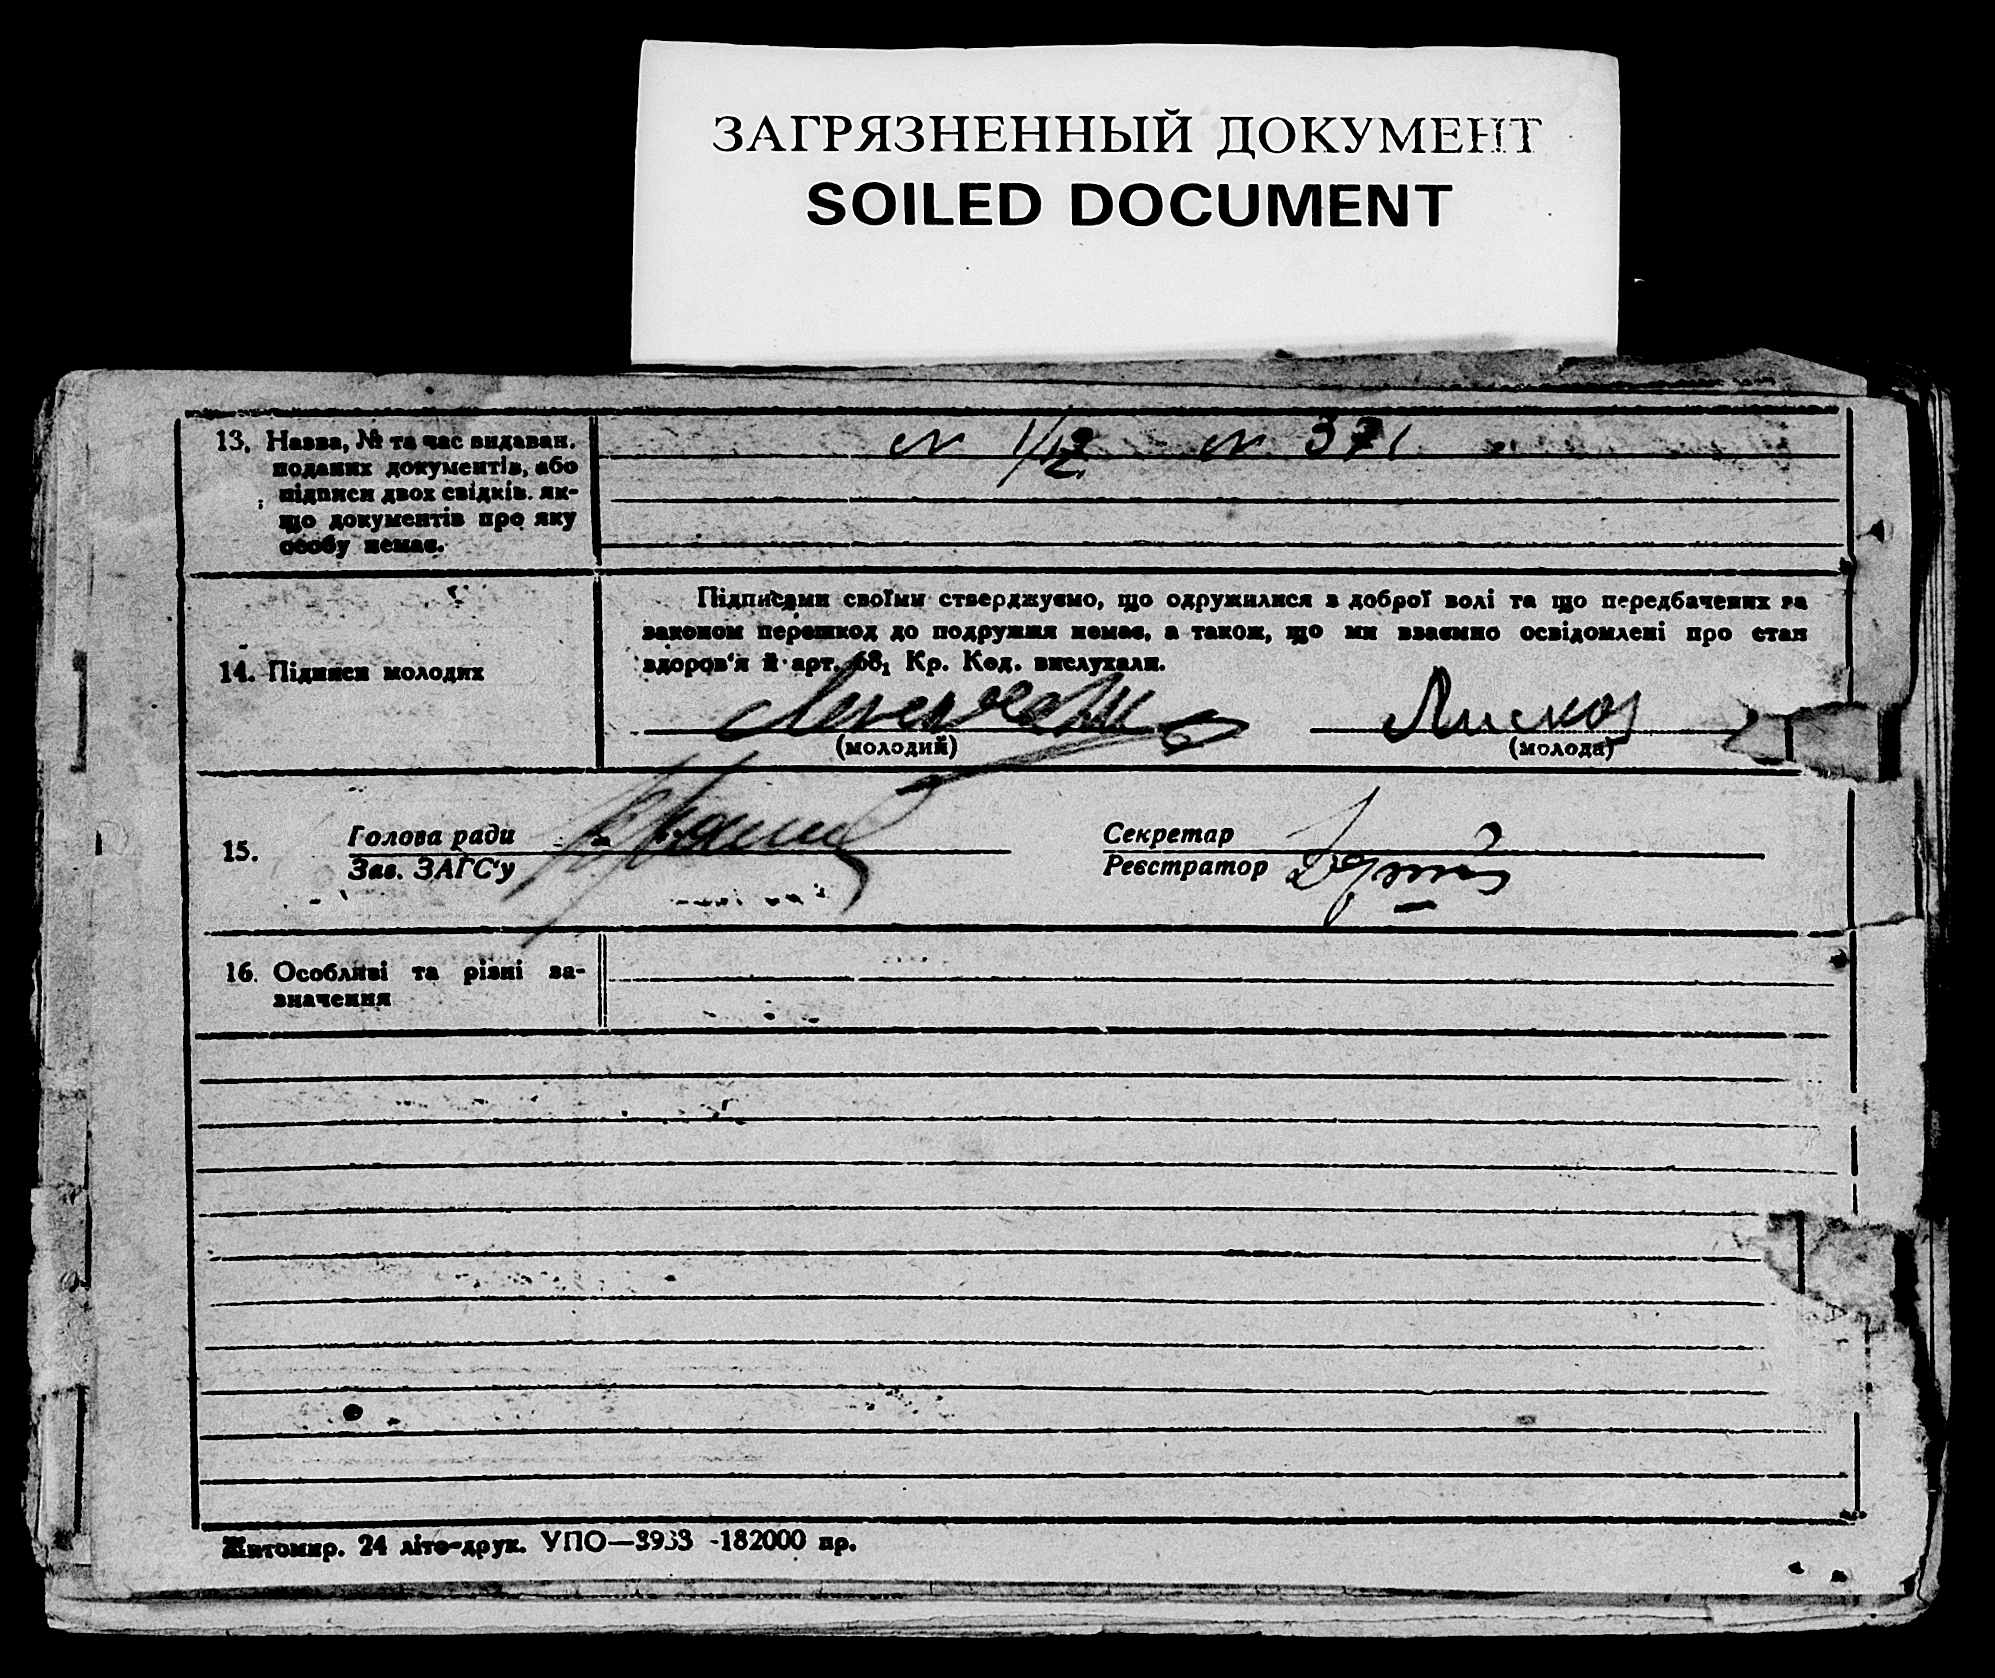 ЗАГРЯЗНЕННЫЙ ДОКУМЕНТ
SOILED DOCUMENT
13. Назва, № та час видаван.
поданих документів, або
підписи двох свідків. як-
що документів про яку
особу немає.
N 1/12 N 371
Підписами своїми стверджуємо, що одружилися з доброї волі та що передбачених за
законом перешкод до подружжя немає, а також, що ми взаємно освідомлені про стан
здоров'я й арт. 68₁ Кр. Код. вислухали.
14. Підписи молодих
(молодий) (молода)
15.
Голова ради
Зав. ЗАГС'у
Секретар
Реєстратор
16. Особливі та різні за-
значення
Житомир. 24 літо-друк. УПО— -182000 пр.